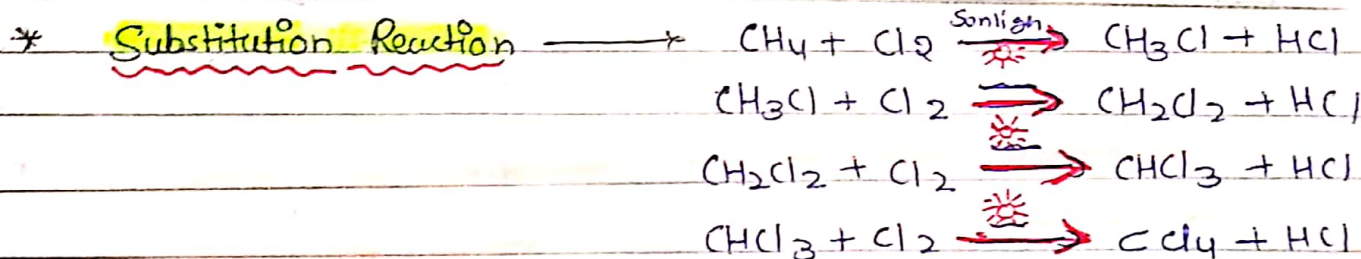 * Substitution Reaction → CH4 + Cl2 Sonligh → CH3Cl + HCl
CH3Cl + Cl2 → CH2Cl2 + HCl
CH2Cl2 + Cl2 → CHCl3 + HCl
CHCl3 + Cl2 → CCl4 + HCl